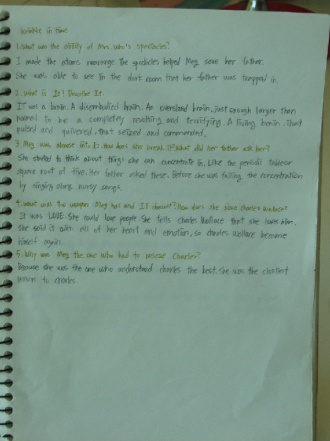 wrinkle in time
1. What was the ability of Mrs who's spectacles?
I made the atoms rearrange. The spectacles helped Meg save her father.
She was able to see in the dark room that her father was trapped in.
2. What is It? Describe It.
IT was a brain. A disembodied brain. An oversized brain, just enough larger than
normal to be a completely revolting and terrifying. A living brain. That
pulsed and quivered, that seized and commanded.
3. Meg was almost IT. How does she break IT? What did her father ask her?
She started to think about things she can concentrate in. Like the periodic table or
square root of five. Her father asked these. Before she was falling the concentration
by singing along nursery songs.
4. What was the weapon Meg has and IT doesn't? How does she save Charles Wallace?
It was LOVE. She could love people. She tells Charles Wallace that she loves him.
She said it with all of her heart and emotion, so Charles Wallace became
himself again.
5. Why was Meg the one who had to rescue Charles?
Because she was the one who understood Charles the best. She was the closest
person to Charles.